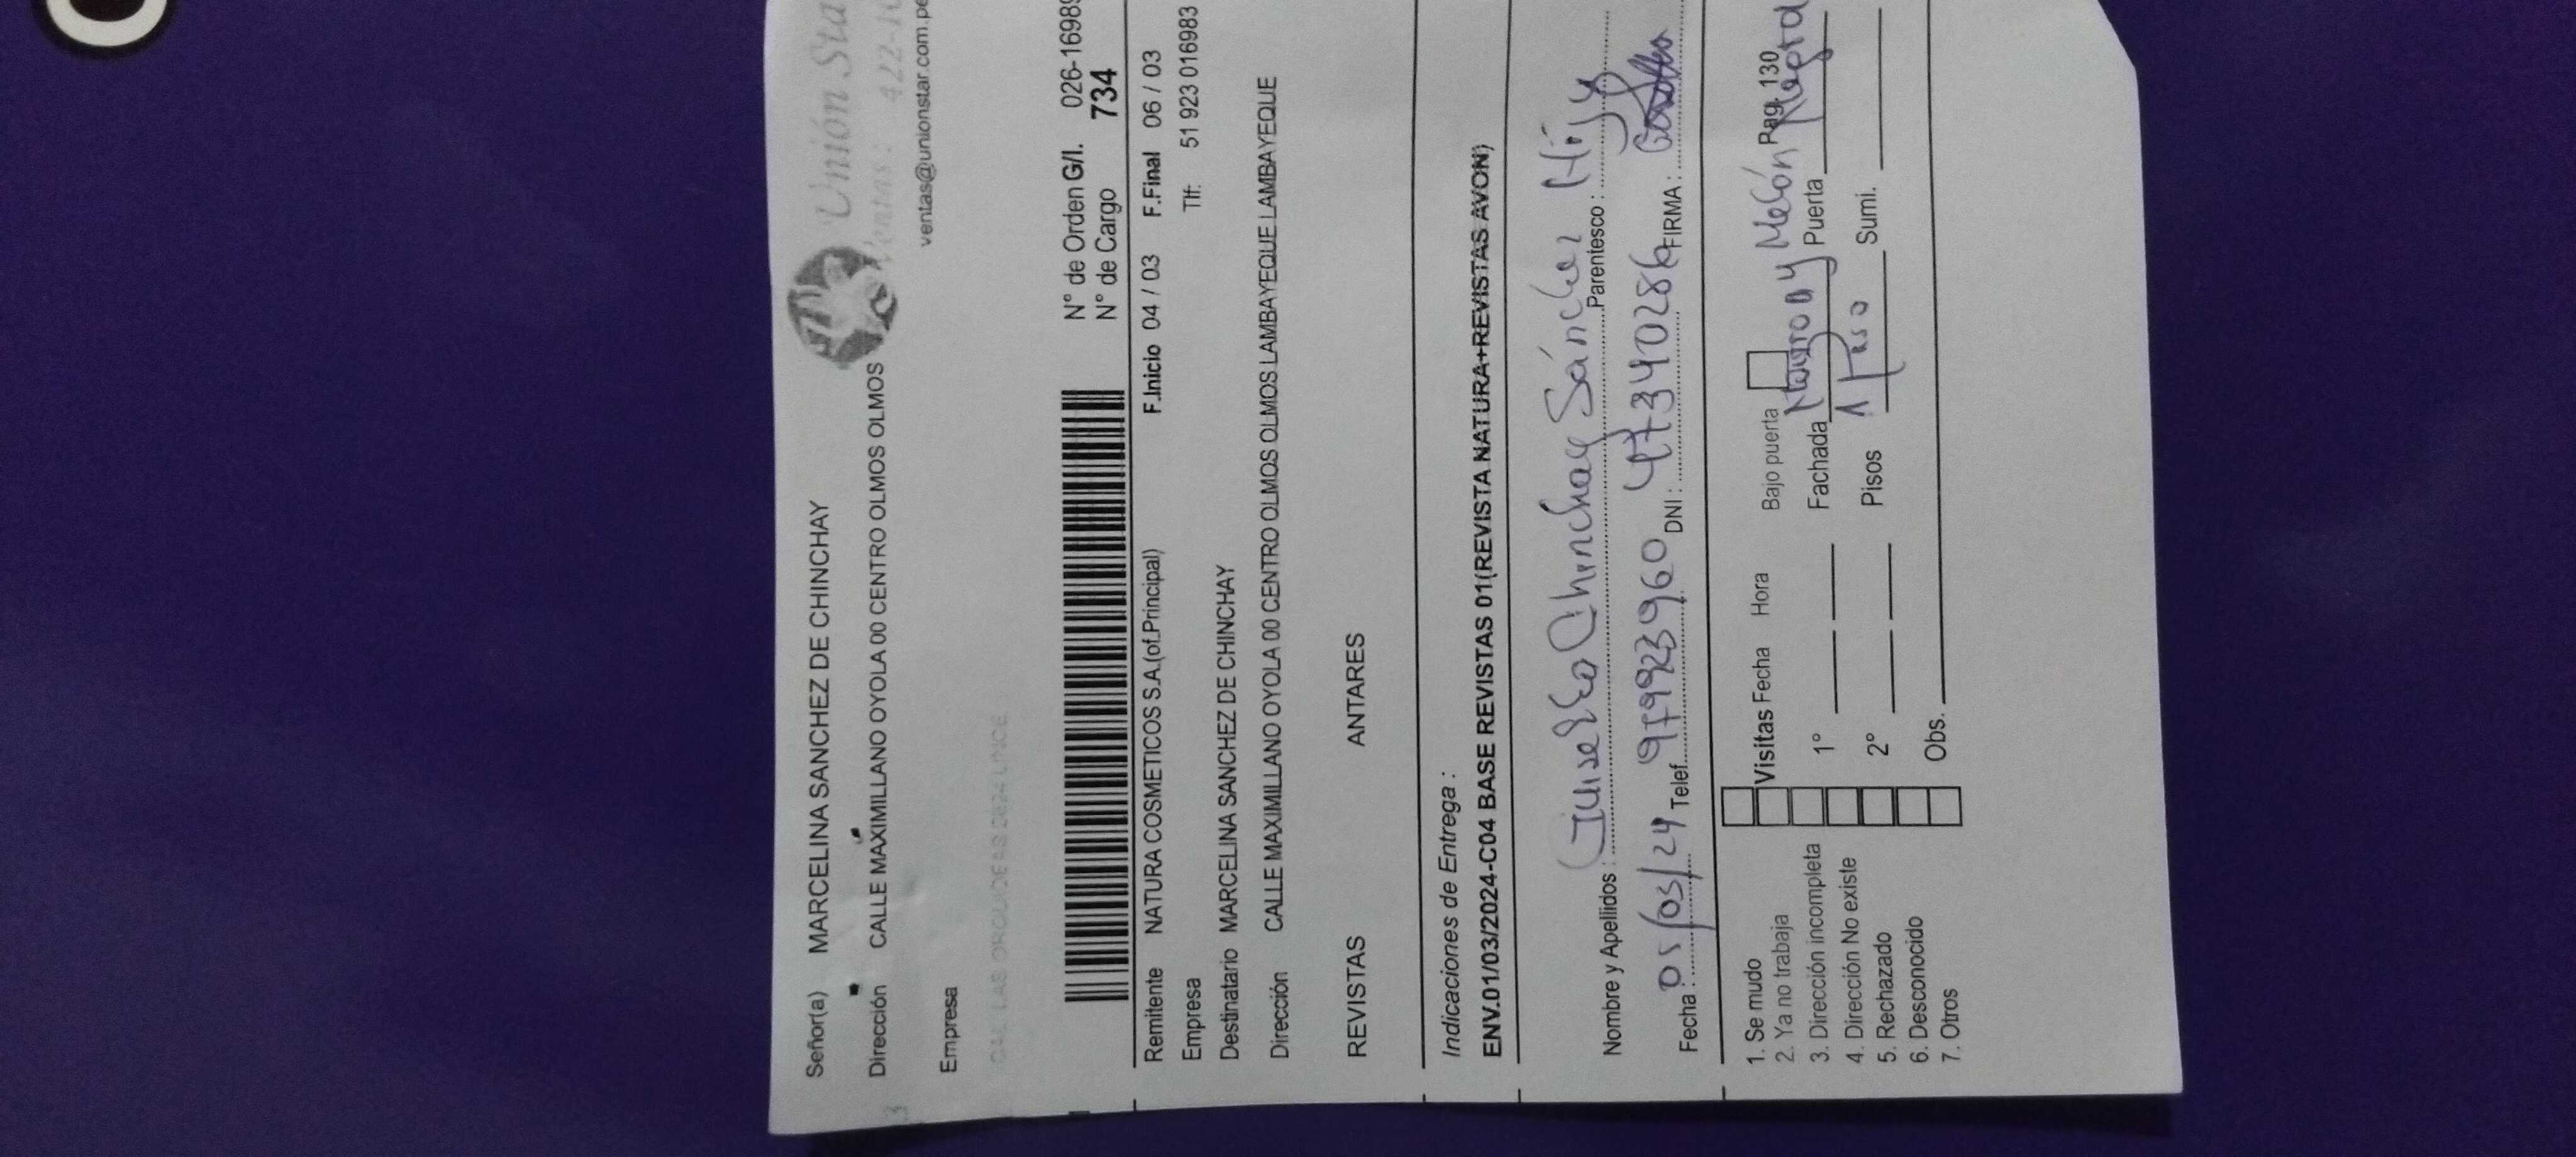 Señor(a) MARCELINA SANCHEZ DE CHINCHAY
Unión Sta
Dirección CALLE MAXIMILLANO OYOLA 00 CENTRO OLMOS OLMOS
Ventas: 422-1
ventas@unionstar.com.pe
Empresa
N° de Orden G/I. 026-16989
N° de Cargo 734
Remitente NATURA COSMETICOS S.A.(of.Principal) F.Inicio 04 / 03 F.Final 06 / 03
Empresa Tlf: 51 923 016983
Destinatario MARCELINA SANCHEZ DE CHINCHAY
Dirección CALLE MAXIMILLANO OYOLA 00 CENTRO OLMOS OLMOS LAMBAYEQUE LAMBAYEQUE
REVISTAS ANTARES
Indicaciones de Entrega :
ENV.01/03/2024-C04 BASE REVISTAS 01(REVISTA NATURA+REVISTAS AVON)
Nombre y Apellidos : Chinchay Sánchez Parentesco : Hijo
Fecha : 05/03/24 Telef. 979923960 DNI : 47340286 FIRMA :
1. Se mudo
2. Ya no trabaja
3. Dirección incompleta
4. Dirección No existe
5. Rechazado
6. Desconocido
7. Otros
Visitas Fecha Hora Bajo puerta Pag. 130
1° Fachada Negro y Melón Puerta Negra
2° Pisos 1 Piso Sumi.
Obs.